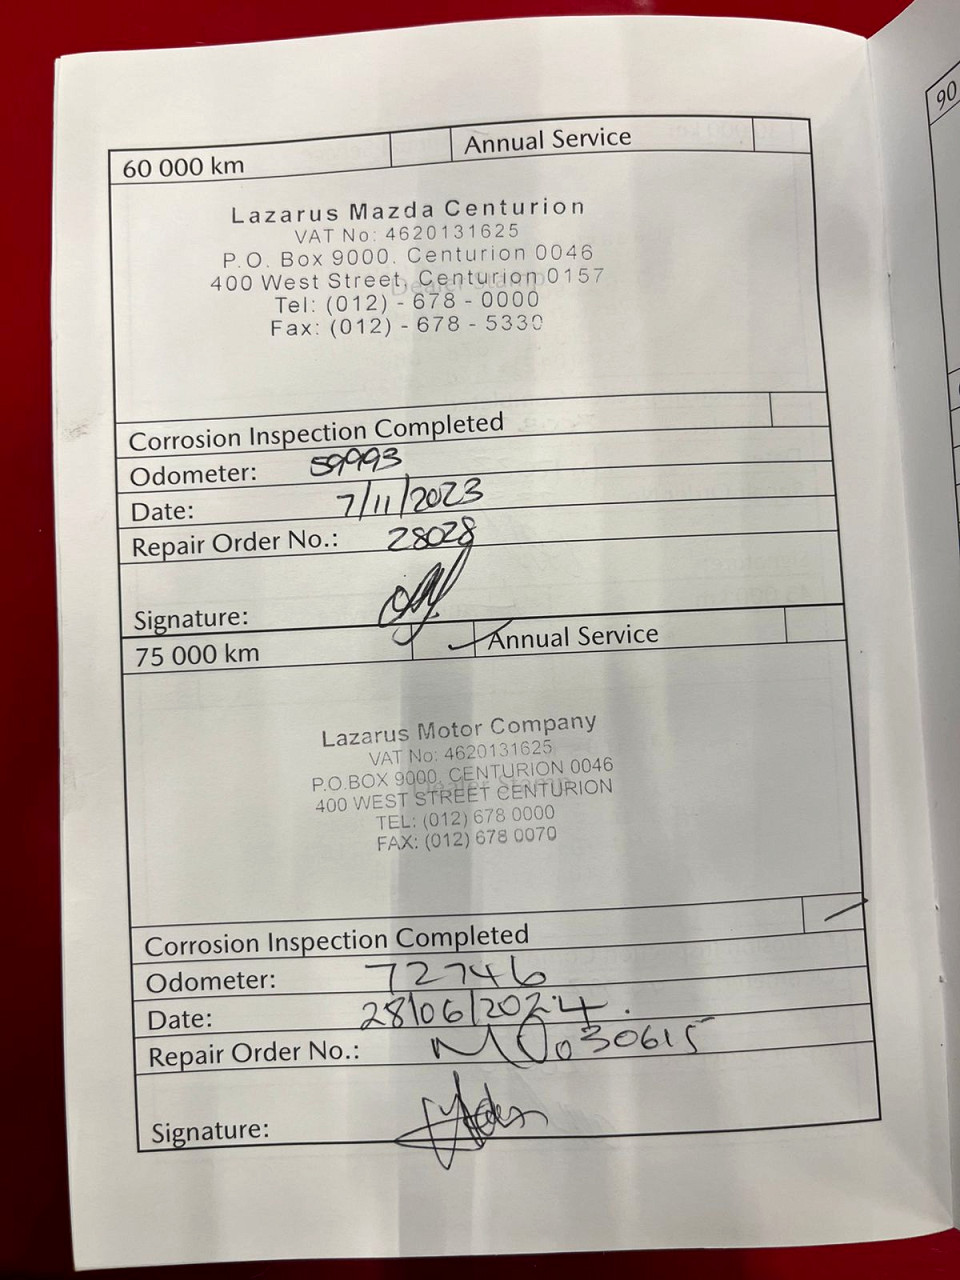 60 000 km Annual Service
Lazarus Mazda Centurion
VAT No: 4620131625
P.O. Box 9000. Centurion 0046
400 West Street, Centurion 0157
Dealer Stamp
Tel: (012) - 678 - 0000
Fax: (012) - 678 - 5330
Corrosion Inspection Completed
Odometer: 59993
Date: 7/11/2023
Repair Order No.: 28028
Signature:
75 000 km Annual Service
Lazarus Motor Company
VAT No: 4620131625
P.O.BOX 9000, CENTURION 0046
Dealer Stamp
400 WEST STREET CENTURION
TEL: (012) 678 0000
FAX: (012) 678 0070
Corrosion Inspection Completed
Odometer: 72746
Date: 28/06/2024.
Repair Order No.: 030615
Signature:
90